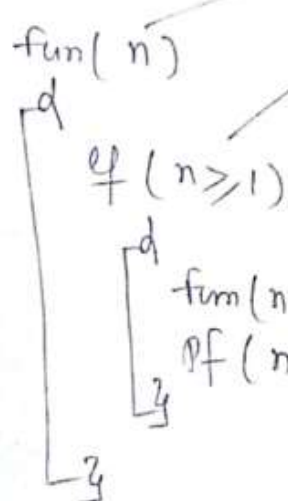 fun( n)
{
if ( n ≥ 1)
{
fun( n
Pf ( n
}
}